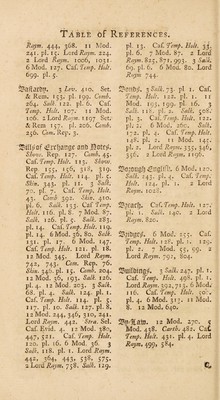 TABLE OF REFERENCES.
Raym. 444, 368. 11 Mod.
241. pl. 15. Lord Raym. 224.
2 Lord Raym. 1006, 1031
6 Mod. 127. Caf. Temp. Holt.
699. pl. 5.
Baſtardy. 3 Lev. 410. Set.
& Rem 153. pl. 199. Comb.
264. Salk. 122. pl. 6. Caf.
Temp. Holt. 107 11 Mod.
106. 2 Lord Raym. 1197 Set.
& Rem 157. pl. 206. Comb.
256. Com. Rep. 5.
Bills of Exchange and Notes.
Show. Rep. 127. Comb. 45.
Caf. Temp. Holt. 113. Show.
Rep 155, 156, 318, 319.
Caf. Temp. Holt. 114. pl. 2.
Skin. 343. pl. 11. 3 Salk.
70. pl. 7. Caf. Temp. Holt.
pl. 4. Comb 392. Skin. 410.
pl. 6. Salk. 125. Caf Temp.
Holt. 116. pl. 8. 7 Mod. 87.
Salk. 126. pl. 5. Salk. 283.
pl. 14. Caf. Temp. Holt. 119.
pl. 14. 6 Mod. 36, 80. Salk.
131. pl. 17. 6 Mod. 147.
Caf. Temp. Holt. 121. pl. 18.
12 Mod. 345. Lord Raym.
742, 743. Com. Rep. 76.
Skin. 346. pl. 14. Comb. 204.
12 Mod. 36, 125. Salk. 126.
pl. 4. 12 Mod. 203. 3 Salk.
68. pl. 4. Salk. 124. pl. 1.
Caf. Temp. Holt. 114. pl. 5.
117. pl. 10. Salk. 127. pl. 8.
12 Mod. 244, 310, 241.
Lord Raym. 442. Stra. Sel.
Caf. Evid. 4. 12 Mod. 380,
447, 521. Caf. Temp. Holt.
120. pl. 16. 6 Mod. 36. 3
Salk. 118. pl. 1. Lord Raym.
442, 364, 443, 538, 575.
2 Lord Raym. 758. Salk. 129.
pl. 13. Caf. Temp. Holt. 35.
pl. 6. 7 Mod. 87. 2 Lord
Raym. 825, 871, 993. 3 Salk.
69. pl. 6. 6 Mod. 80. Lord
Raym 744.
Bonds. 3 Salk. 73. pl. 1. Caf.
Temp. Holt. 122. pl. 1. 11
Caf. Temp. Holt. 122.
Borough Engliſh. 6 Mod. 120.
Salk. 243. pl. 4. Caf. Temp.
Holt. 124. pl. 1. 2 Lord
Raym. 1026.
Breach. Caf. Temp. Holt. 127.
pl. 1. Salk. 140. 2 Lord
Raym. 820.
Bridges. 6 Mod. 255. Caf.
Temp. Holt. 128. pl. 1. 129.
pl. 2. 7 Mod. 55, 99. 2
Lord Raym. 792, 804.
Buildings. 3 Salk. 247. pl. 1.
Caf. Temp. Holt. 498. pl. 1.
Lord Raym. 292, 713. 6 Mod.
116. Caf. Temp. Holt. 500.
pl. 4. 6 Mod. 313. 11 Mod.
8. 12 Mod. 640.
By-Law. 12 Mod. 270. 5
Mod. 438. Carth. 482. Caf.
Temp. Holt. 431. pl. 4. Lord
Raym. 499, 584.